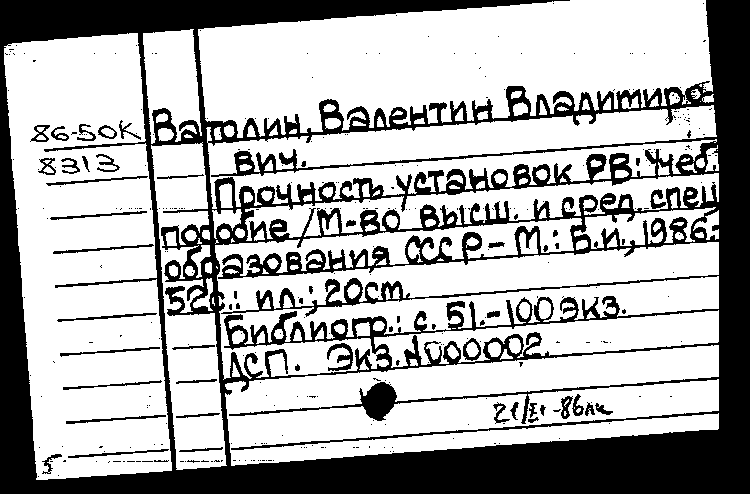 86-50К
8313
Ватолин, Валентин Владимиро-
вич.
Прочность установок РВ: Учеб.
пособие / М-во высш. и сред. спец
образования СССР. - М.: Б.и., 1986.-
52с.: ил.; 20ст.
Библиогр.: с. 51.-100 экз.
ДСП. Экз. N000002.
5